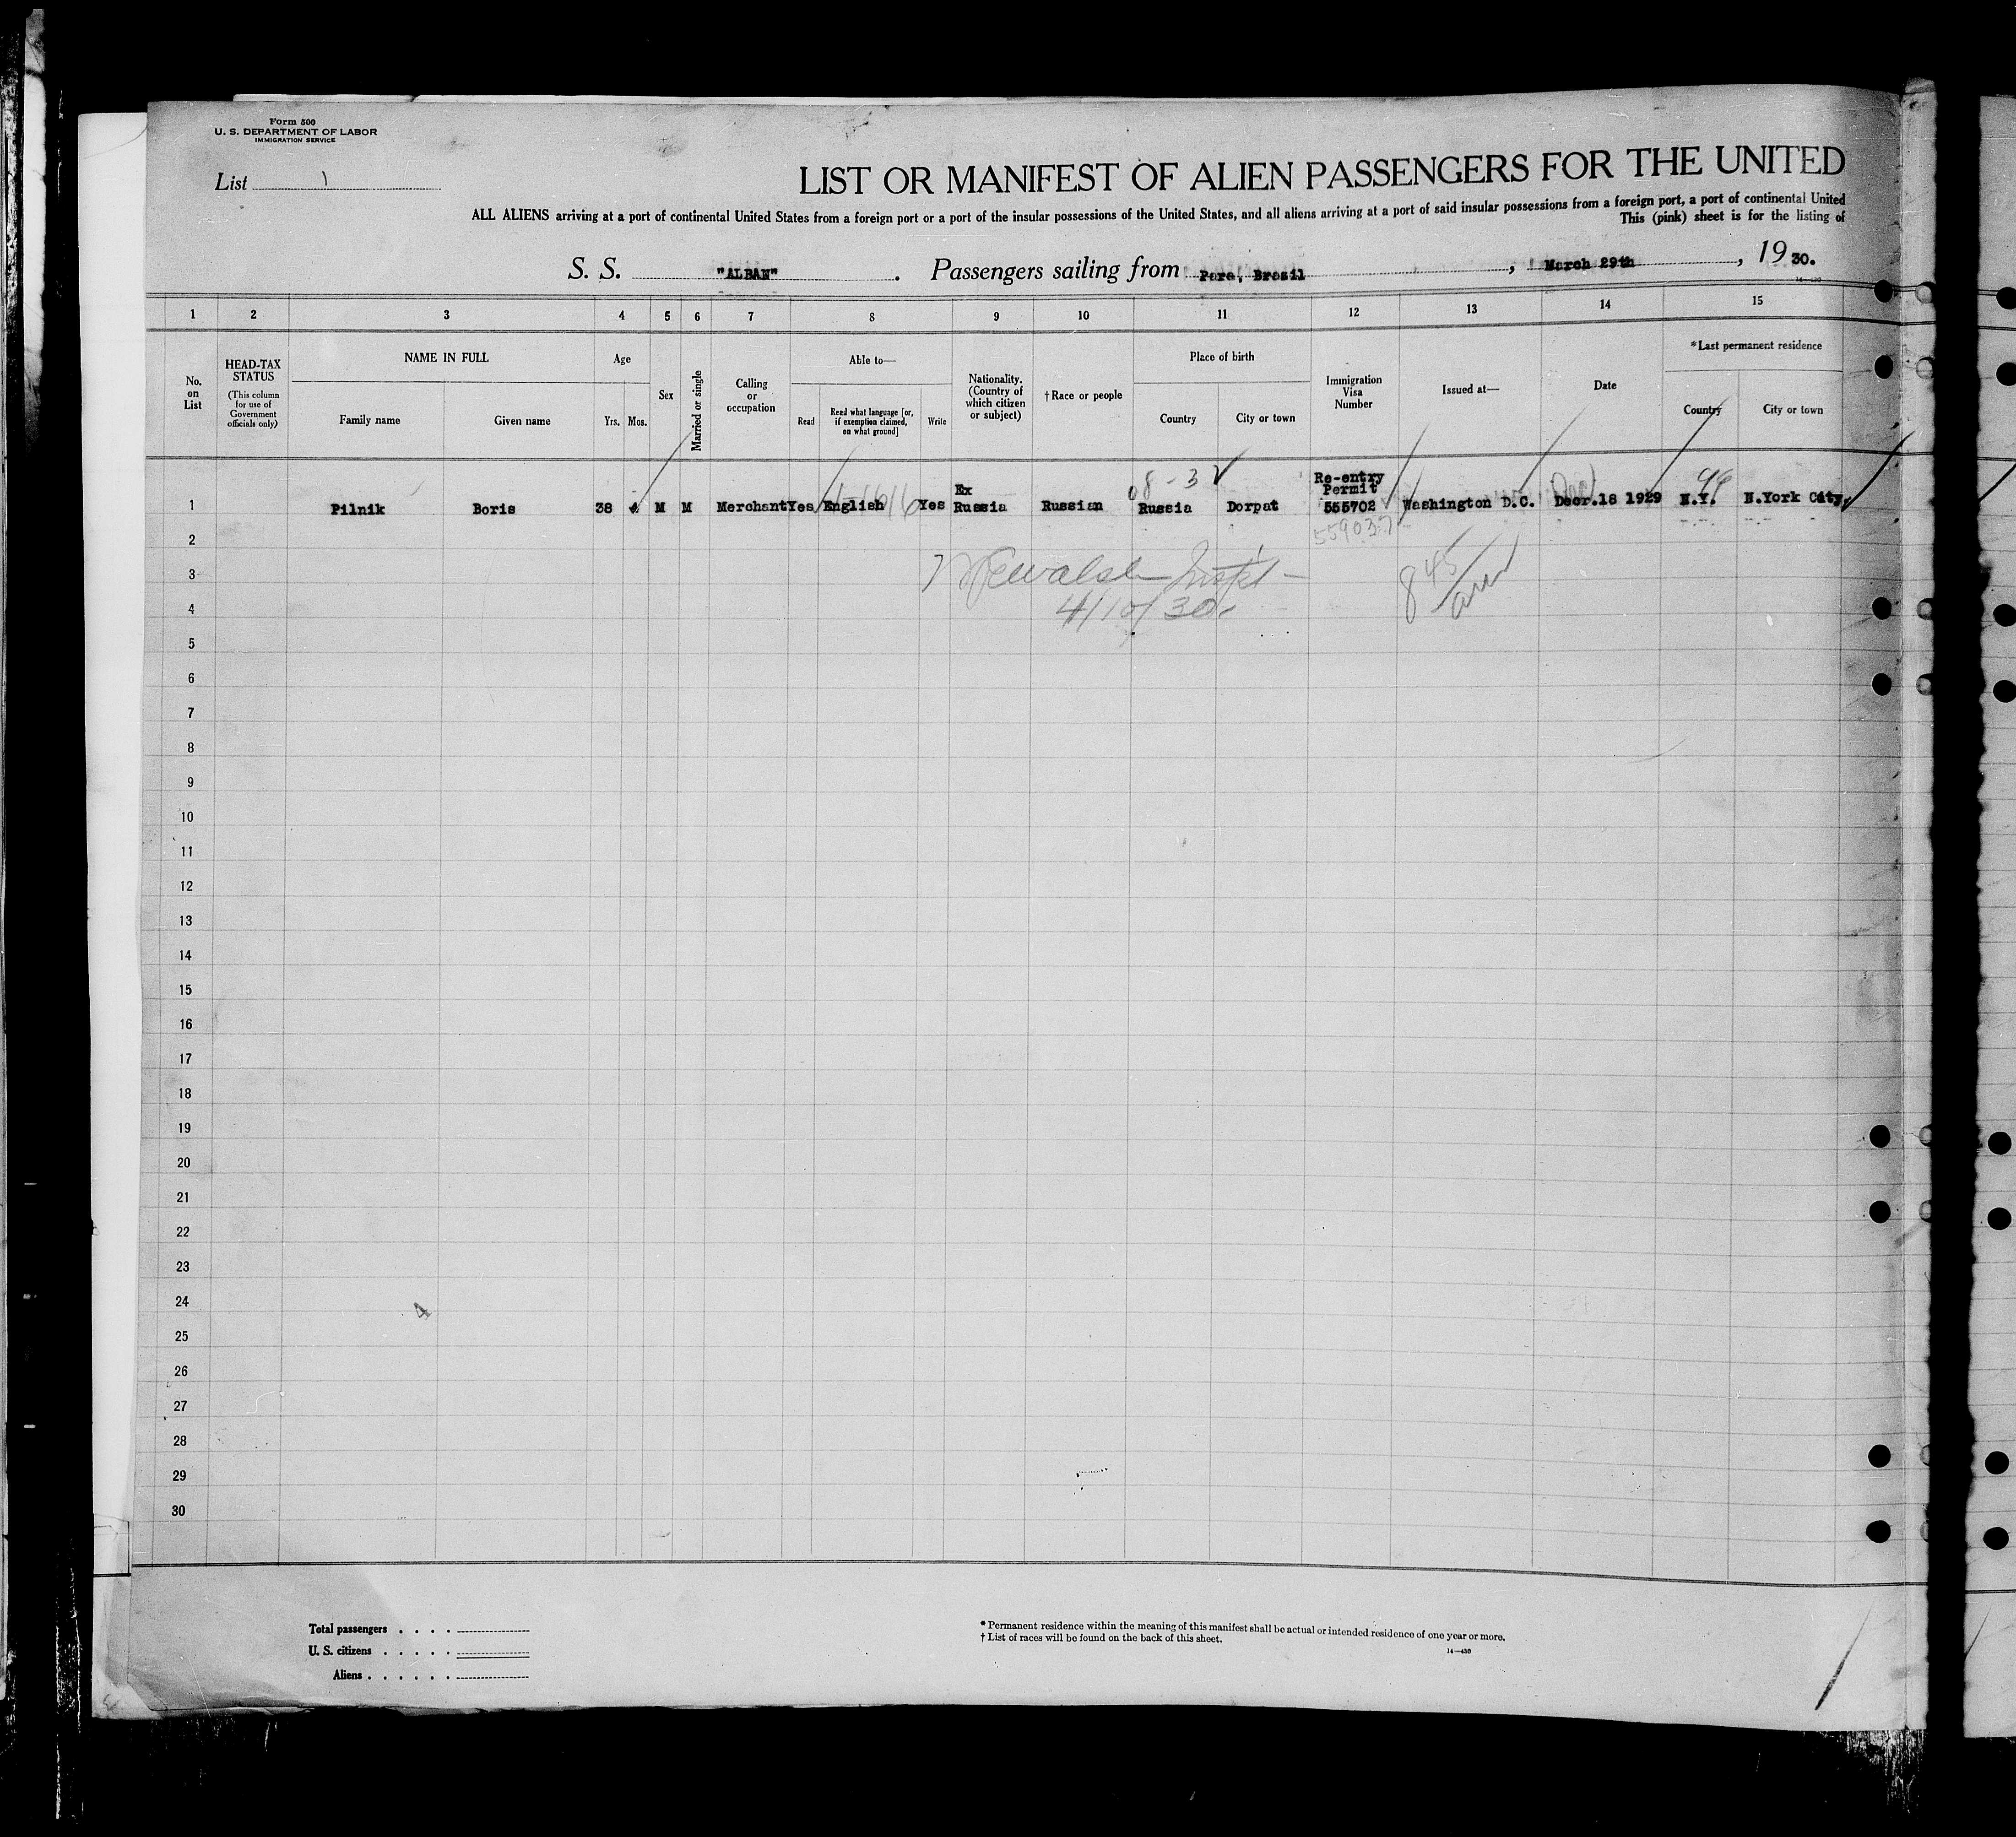 Form 500
U. S. DEPARTMENT OF LABOR
IMMIGRATION SERVICE
List 1
LIST OR MANIFEST OF ALIEN PASSENGERS FOR THE UNITED
ALL ALIENS arriving at a port of continental United States from a foreign port or a port of the insular possessions of the United States, and all aliens arriving at a port of said insular possessions from a foreign port, a port of continental United
This (pink) sheet is for the listing of
S. S. "ALBAN". Passengers sailing from Para, Brasil, March 29th, 1930.
14—430
1 2 3 4 5 6 7 8 9 10 11 12 13 14 15
No. on List
HEAD-TAX STATUS
(This column for use of Government officials only)
NAME IN FULL
Family name
Given name
Age
Yrs.
Mos.
Sex
Married or single
Calling or occupation
Able to—
Read
Read what language [or, if exemption claimed, on what ground]
Write
Nationality. (Country of which citizen or subject)
†Race or people
Place of birth
Country
City or town
Immigration Visa Number
Issued at—
Date
*Last permanent residence
Country
City or town
08-3
Re-entry
Ex Permit
1 Pilnik Boris 38 4 M M Merchant Yes English Yes Russia Russian Russia Dorpat 555702 Washington D.C. Decr.18 1929 N.Y. N.York City,
2 559037
3 Walsh Inspt
4 4/10/30 845 am
5
6
7
8
9
10
11
12
13
14
15
16
17
18
19
20
21
22
23
24 4
25
26
27
28
29
30
Total passengers . . . .
U. S. citizens . . . . .
Aliens . . . . . .
* Permanent residence within the meaning of this manifest shall be actual or intended residence of one year or more.
† List of races will be found on the back of this sheet.
14—430